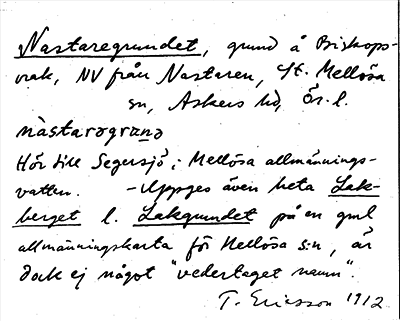 Nastaregrundet, grund å Biskops-
vrak, NV från Nastaren, St. Mellösa
sn, Askers hd, Ör. l.
nàstarəgrɯnə
Hör till Segersjö; Mellösa allmännings-
vatten. - Uppges även heta Lak-
berget l. Lakgrundet på en gml
allmänningskarta för Mellösa s:n, är
dock ej något "vedertaget namn".
T. Ericsson 1912